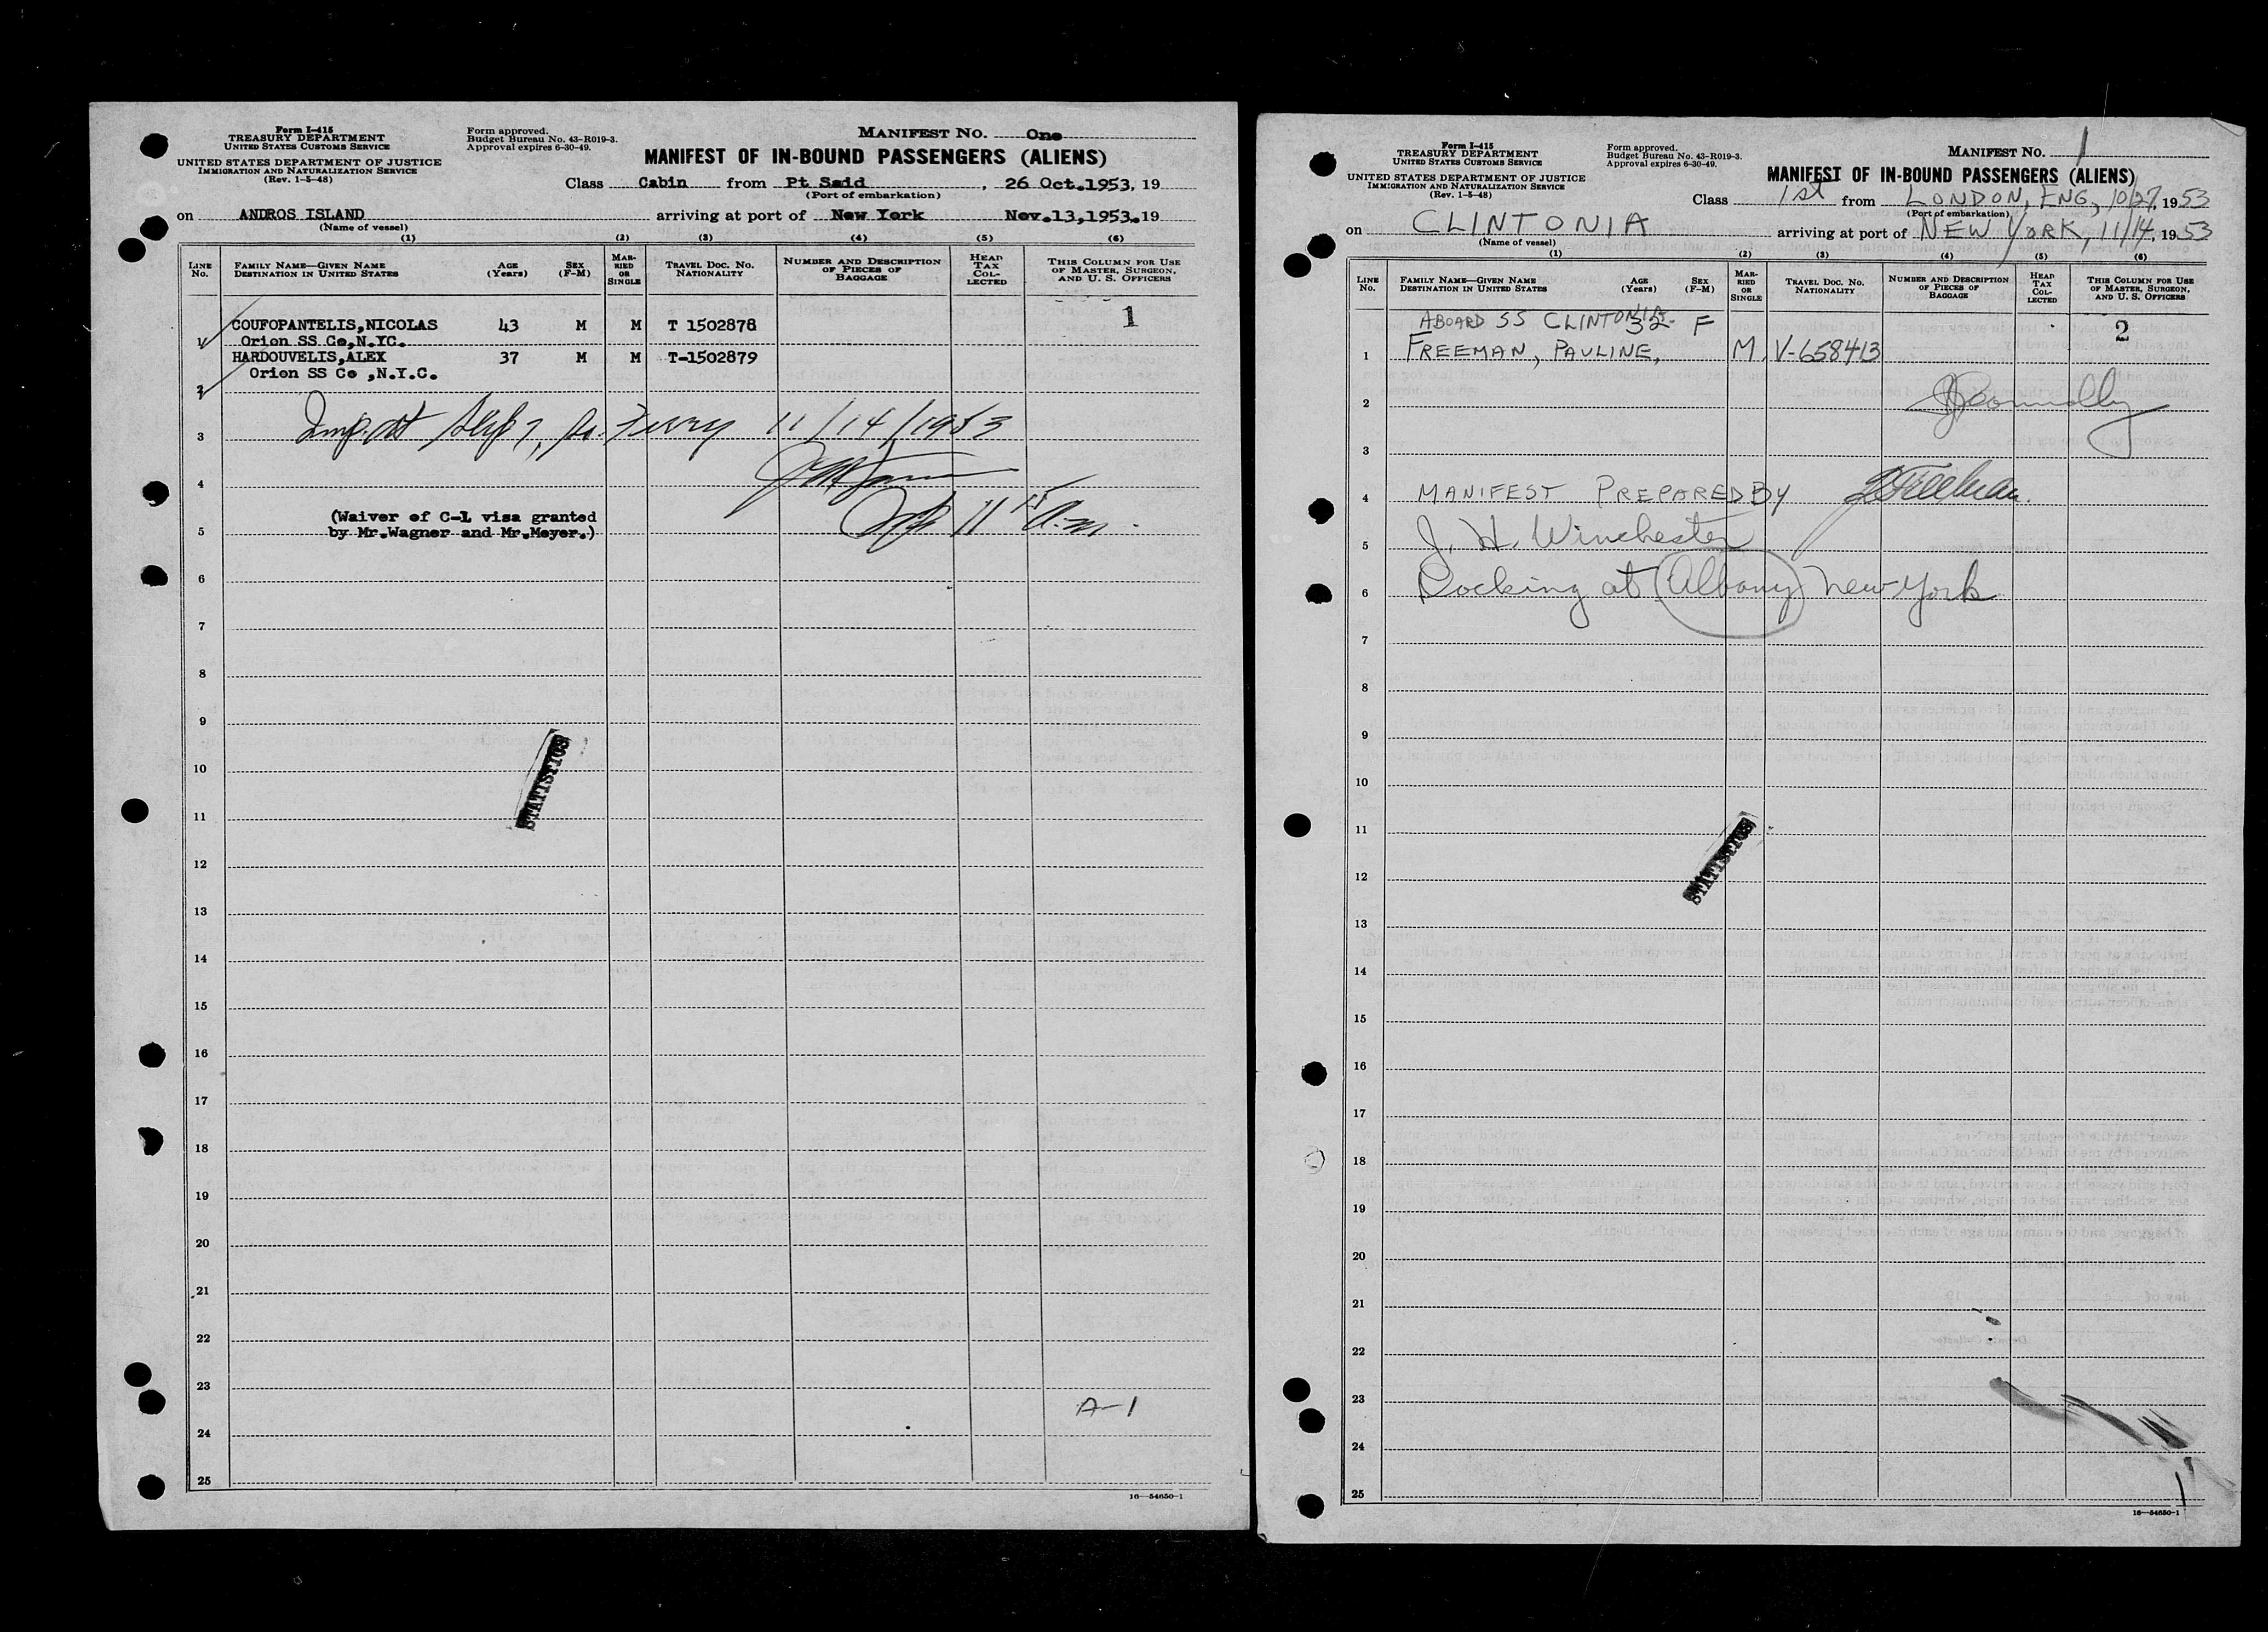 Form I-415
TREASURY DEPARTMENT
UNITED STATES CUSTOMS SERVICE
UNITED STATES DEPARTMENT OF JUSTICE
IMMIGRATION AND NATURALIZATION SERVICE
(Rev. 1-5-48)
Form approved.
Budget Bureau No. 43-R019-3.
Approval expires 6-30-49.
MANIFEST NO. One
MANIFEST OF IN-BOUND PASSENGERS (ALIENS)
Class Cabin from Pt Said, 26 Oct.1953, 19
(Port of embarkation)
on ANDROS ISLAND arriving at port of New York Nov.13,1953.19
(Name of vessel)
(1) (2) (3) (4) (5) (6)
LINE No. FAMILY NAME—GIVEN NAME DESTINATION IN UNITED STATES AGE (Years) SEX (F-M) MARRIED OR SINGLE TRAVEL DOC. NO. NATIONALITY NUMBER AND DESCRIPTION OF PIECES OF BAGGAGE HEAD TAX COLLECTED THIS COLUMN FOR USE OF MASTER, SURGEON, AND U. S. OFFICERS
1
COUFOPANTELIS,NICOLAS 43 M M T 1502878
1 Orion SS Co,N.YC.
HARDOUVELIS,ALEX 37 M M T-1502879
Orion SS Co ,N.Y.C.
2
3 11/14/1953
4
(Waiver of C-1 visa granted
5 by Mr.Wagner and Mr.Meyer.)
11 15 a.m.
6
7
8
9
STATISTICS
10
11
12
13
14
15
16
17
18
19
20
21
22
23
A-1
24
25
16—54650-1
Form I-415
TREASURY DEPARTMENT
UNITED STATES CUSTOMS SERVICE
UNITED STATES DEPARTMENT OF JUSTICE
IMMIGRATION AND NATURALIZATION SERVICE
(Rev. 1-5-48)
Form approved.
Budget Bureau No. 43-R019-3.
Approval expires 6-30-49.
MANIFEST NO. 1
MANIFEST OF IN-BOUND PASSENGERS (ALIENS)
Class 1st from LONDON, ENG, 10/27, 1953
(Port of embarkation)
on CLINTONIA arriving at port of NEW YORK, 11/14, 1953
(Name of vessel)
(1) (2) (3) (4) (5) (6)
LINE No. FAMILY NAME—GIVEN NAME DESTINATION IN UNITED STATES AGE (Years) SEX (F-M) MARRIED OR SINGLE TRAVEL DOC. NO. NATIONALITY NUMBER AND DESCRIPTION OF PIECES OF BAGGAGE HEAD TAX COLLECTED THIS COLUMN FOR USE OF MASTER, SURGEON, AND U. S. OFFICERS
ABOARD SS CLINTONIA 32 F 2
1 FREEMAN, PAULINE, M. V-658413
2
3
4 MANIFEST PREPARED BY
5 J. H. Winchester
6 Docking at Albany New York
7
8
9
10
11
STATISTICS
12
13
14
15
16
17
18
19
20
21
22
23
24
25
16—54650-1